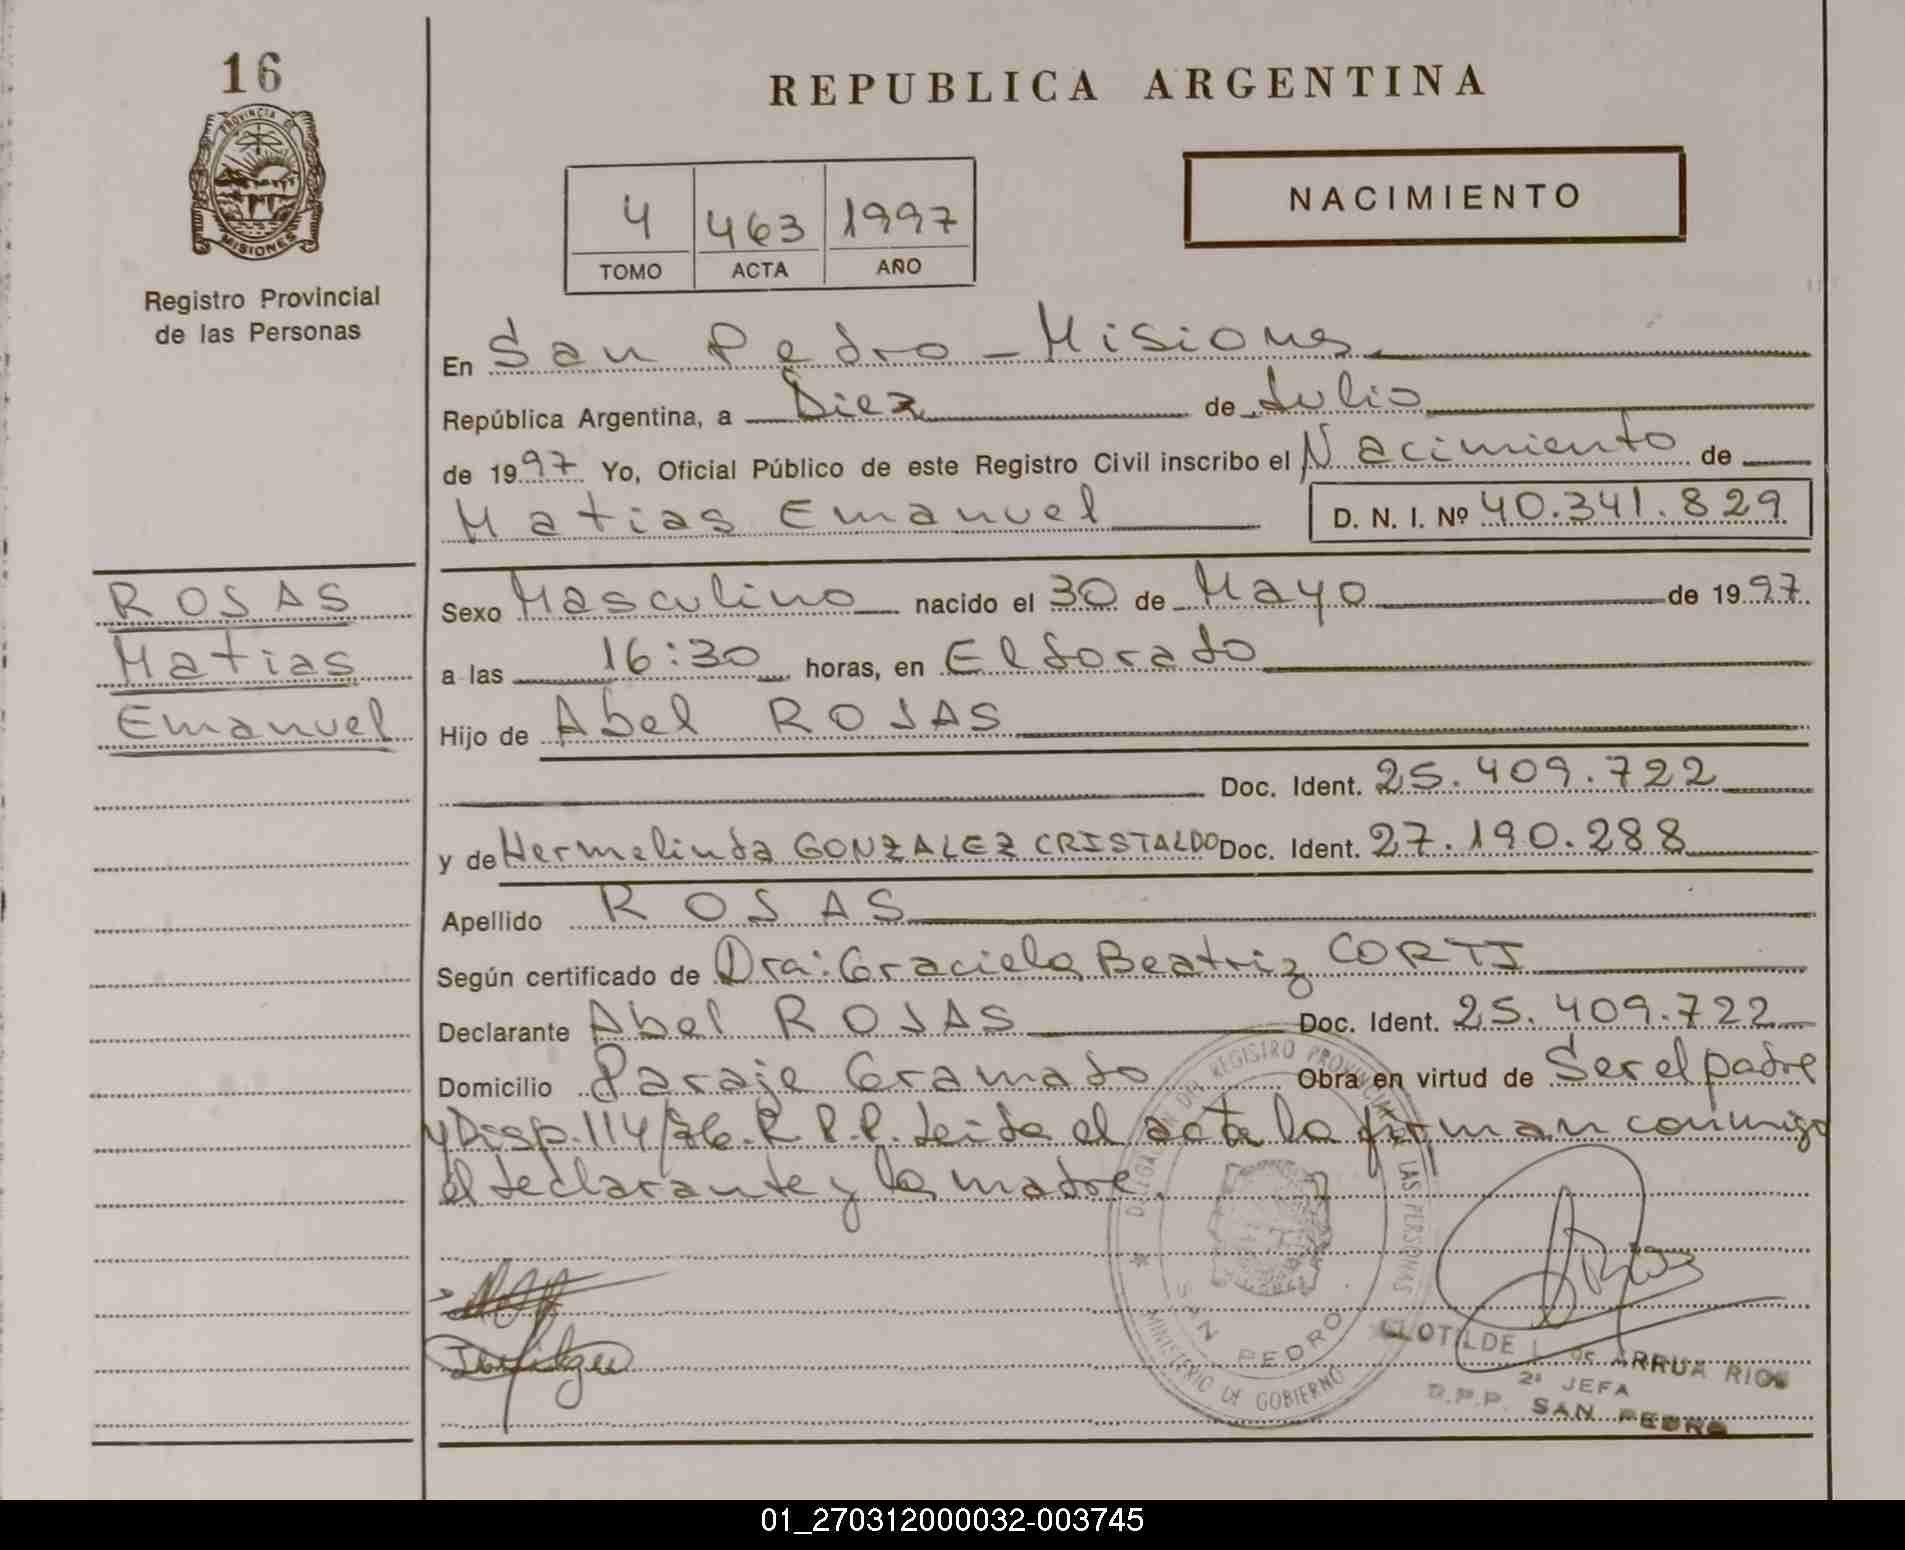 16
PROVINCIA DE
MISIONES
Registro Provincial
de las Personas
REPUBLICA ARGENTINA
4 463 1997
TOMO ACTA AÑO
NACIMIENTO
En San Pedro - Misiones
República Argentina, a Diez de Julio
de 1997 Yo, Oficial Público de este Registro Civil inscribo el Nacimiento de
Matias Emanuel D. N. I. Nº 40.341.829
ROJAS
Matias
Emanuel
Sexo Masculino nacido el 30 de Mayo de 1997
a las 16:30 horas, en Eldorado
Hijo de Abel ROJAS
Doc. Ident. 25.409.722
y de Hermelinda GONZALEZ CRISTALDO Doc. Ident. 27.190.288
Apellido ROJAS
Según certificado de Dra: Graciela Beatriz CORTI
Declarante Abel ROJAS Doc. Ident. 25.409.722
Domicilio Paraje Gramado Obra en virtud de Ser el padre
y Disp. 114/86. R.P.P. Leida el acta la firman conmigo
el declarante y la madre.
DELEGACION DEL REGISTRO PROVINCIAL DE LAS PERSONAS
SAN PEDRO
MINISTERIO DE GOBIERNO
CLOTILDE L. de ARRUA RIOS
2ª JEFA
R.P.P. SAN PEDRO
01_270312000032-003745